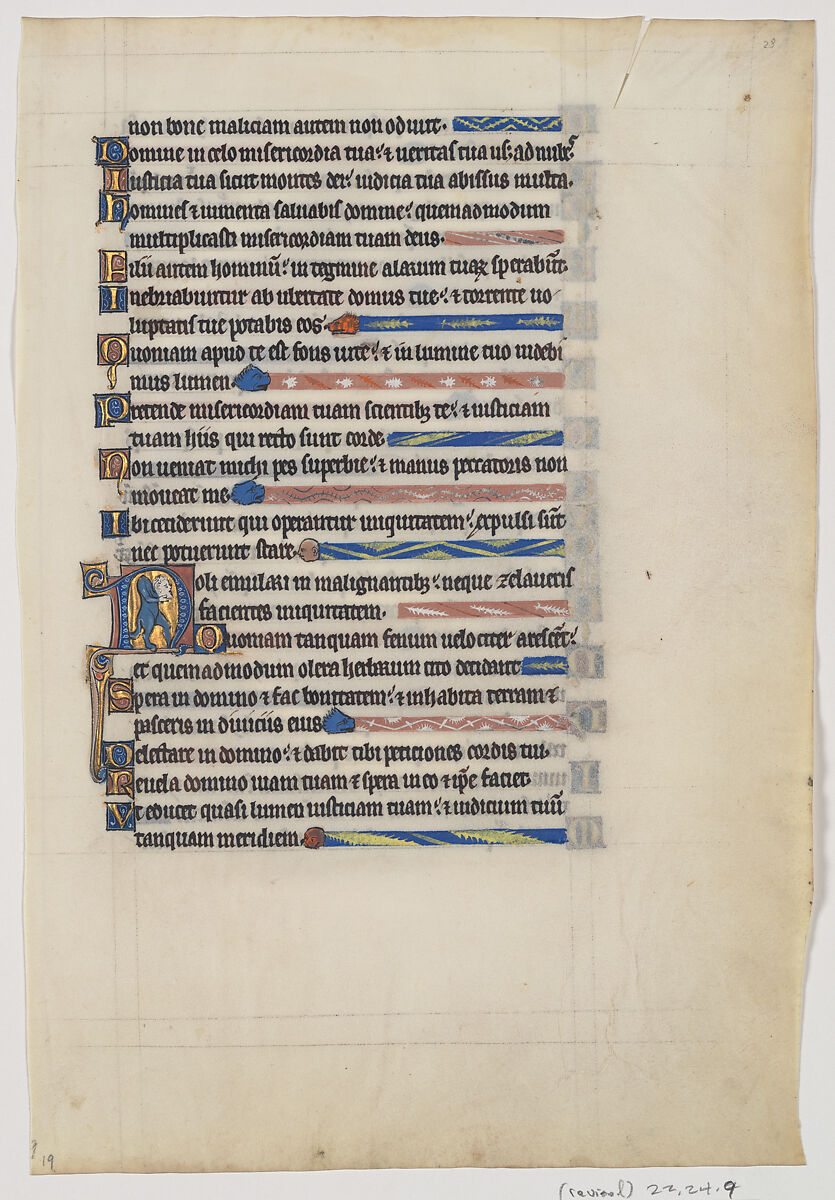 28
non bone maliciam autem non odivit.
Domine in celo misericordia tua: & veritas tua us; ad nub;
Iusticia tua sicut montes dei: iudicia tua abissus multa.
Homines & iumenta salvabis domine: quemadmodum
multiplicasti misericordiam tuam deus.
Filii autem hominū: in tegmine alarum tuaꝝ sperabūt.
Inebriabuntur ab ubertate domus tue: & torrente vo
luptatis tue potabis eos.
Quoniam apud te est fons vite: & in lumine tuo videbi
mus lumen
Pretende misericordiam tuam scientibꝫ te: & iusticiam
tuam hiis qui recto sunt corde
Non veniat michi pes superbie: & manus peccatoris non
moveat me
Ibi ceciderunt qui operantur iniquitatem: expulsi sūt
nec potuerunt stare.
Noli emulari in malignantibꝫ: neque zelaveris
facientes iniquitatem.
Quoniam tanquam fenum velociter arescēt:
et quemadmodum olera herbarum cito decident
Spera in domino & fac bonitatem: & inhabita terram &
pasceris in diviciis eius
Delectare in domino: & dabit tibi peticiones cordis tui.
Revela domino viam tuam & spera in eo & ip̄e faciet.
Vt educet quasi lumen iusticiam tuam: & iudicium tuū
tanquam meridiem
19
22.24.9